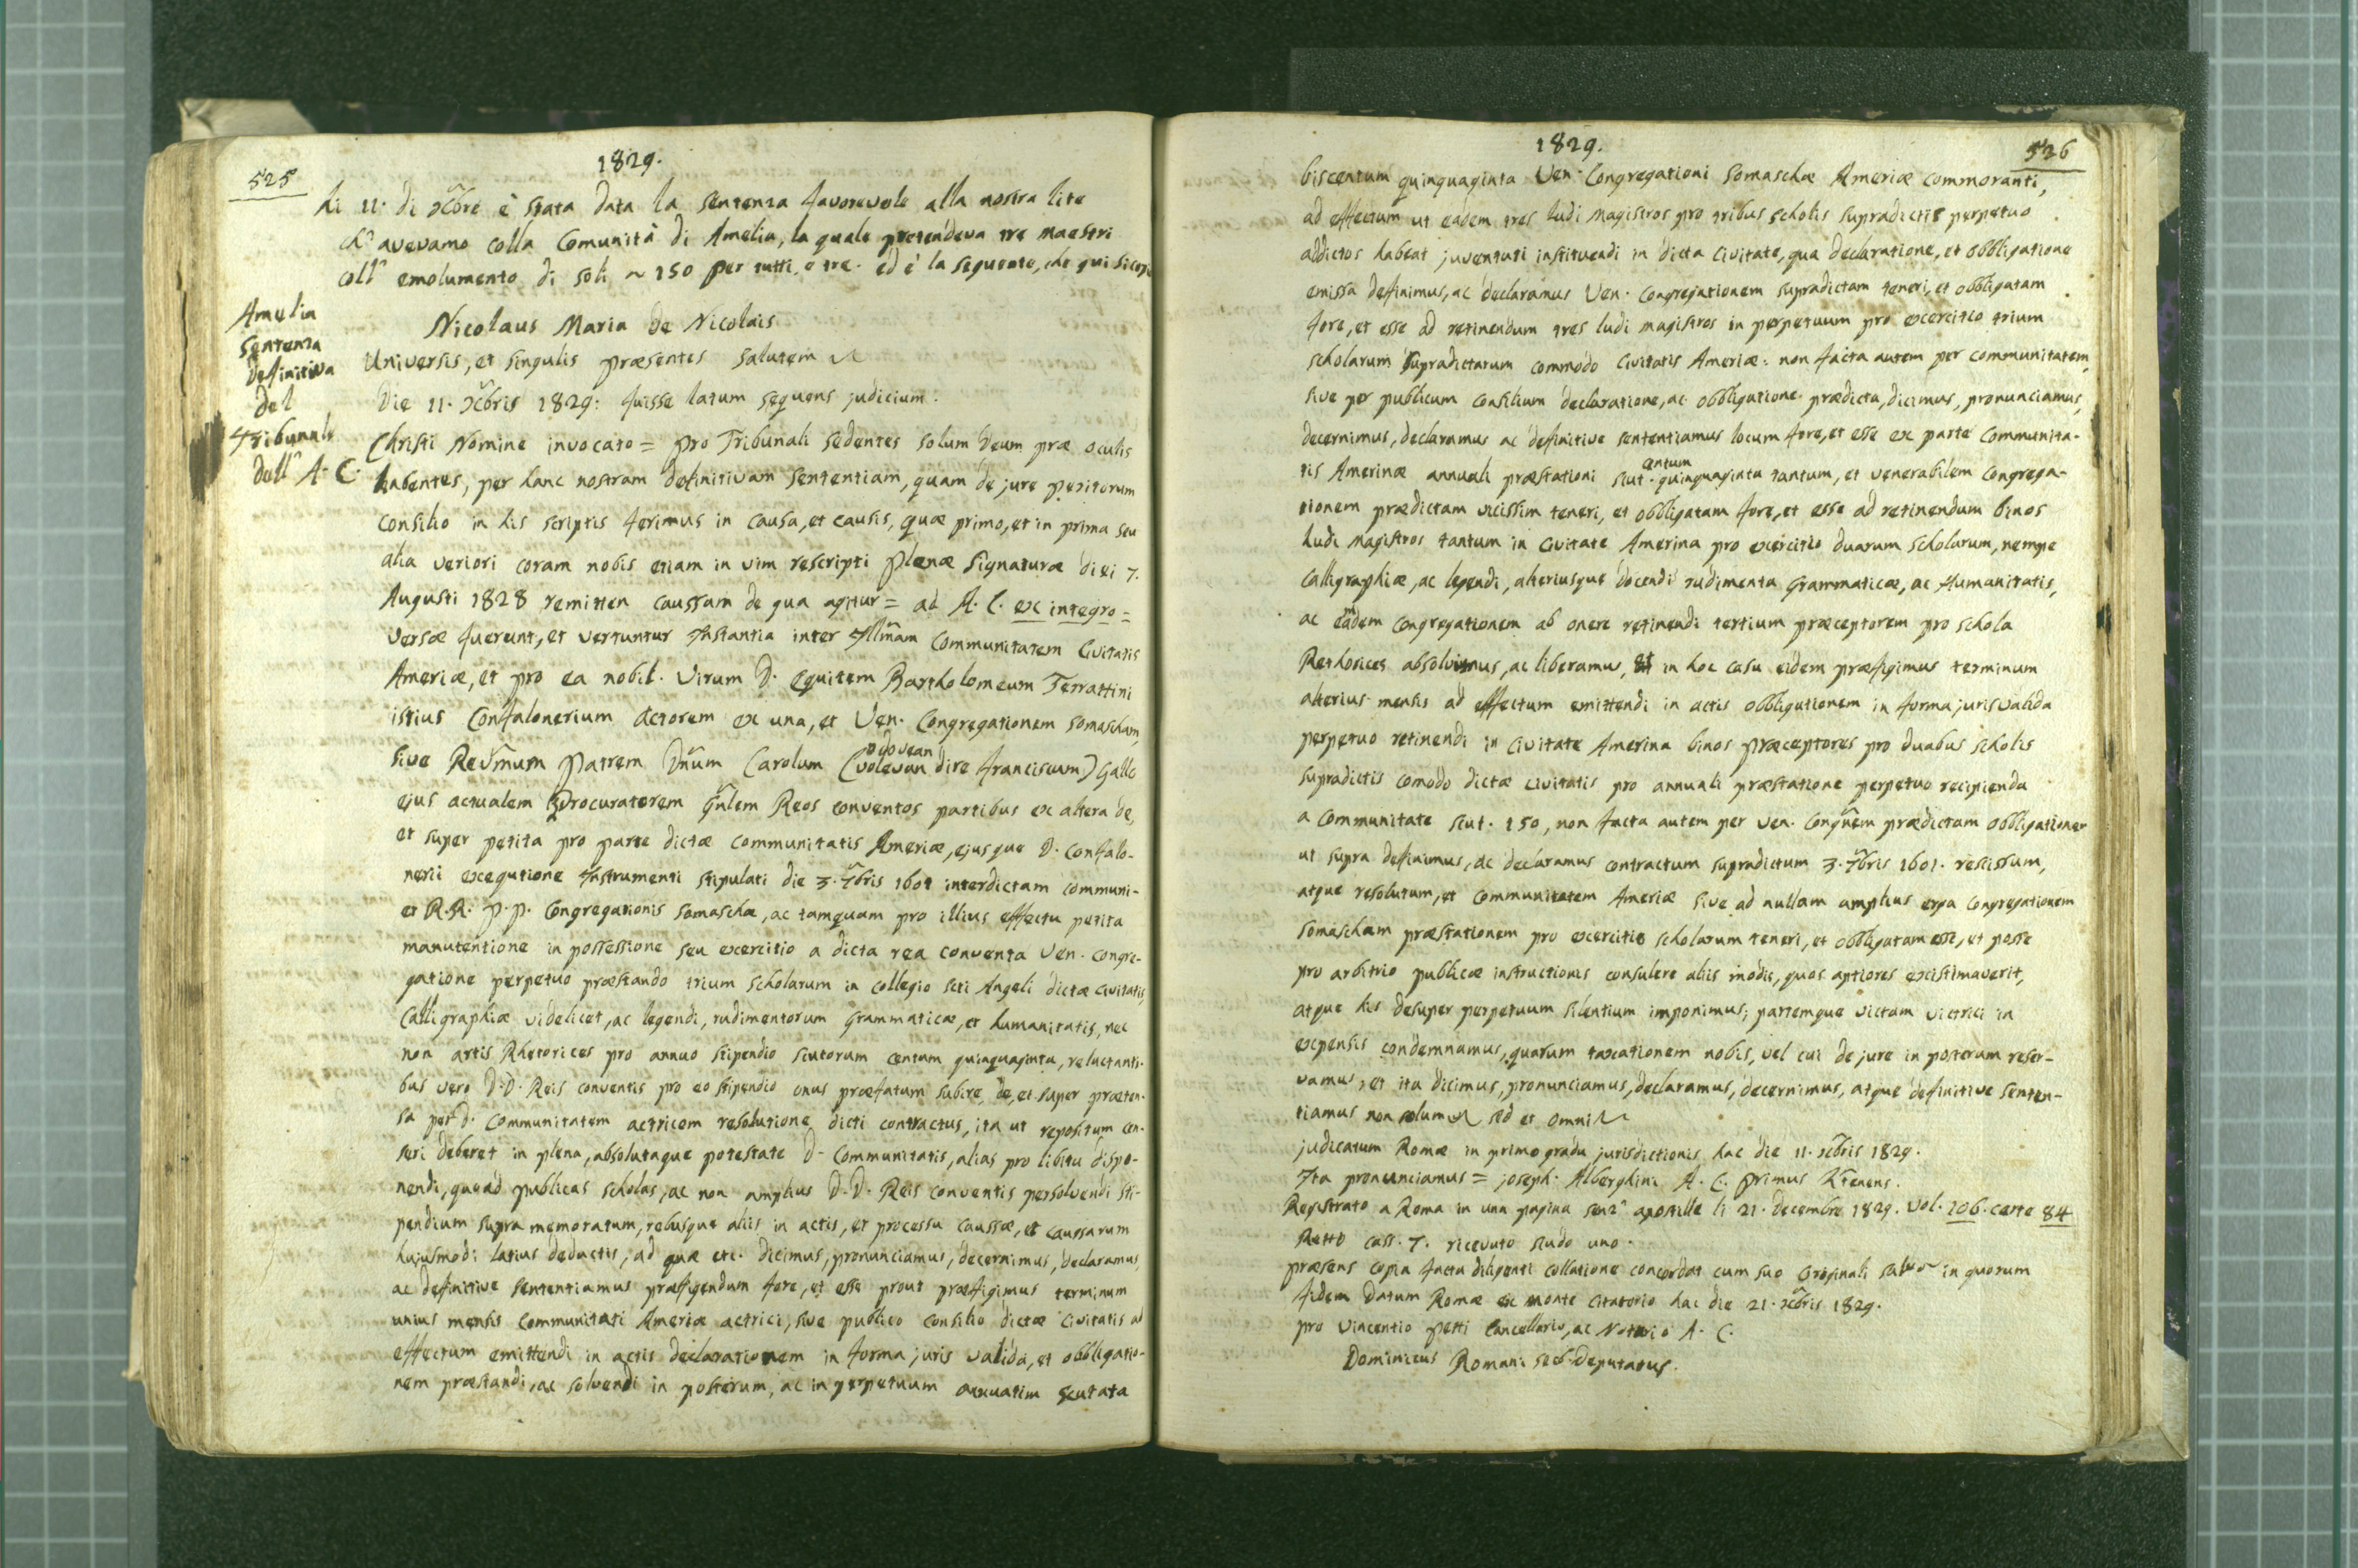 525
1829.
Li 11. di Xbre è stata data la sentenza favorevole alla nostra lite
ch' avevamo colla Comunità di Amelia, la quale pretendeva tre maestri
coll' emolumento di soli ~ 150 per tutti e tre. ed è la seguente, che qui
Amelia
Sentenza
definitiva
del
Tribunale
dell' A. C.
Nicolaus Maria de Nicolais
Universis, et singulis præsentes salutem
Die 11. Xbris 1829: fuisse latum sequens judicium.
Christi Nomine invocato = pro Tribunali sedentes solum Deum præ oculis
habentes, per hanc nostram definitivam sententiam, quam de jure peritorum
consilio in his scriptis ferimus in causa, et causis, quæ primo, et in prima seu
alia veriori coram nobis etiam in vim rescripti plenæ Signaturæ diei 7.
Augusti 1828 remitten caussam de qua agitur = ad A. C. ex integro =
versæ fuerunt, et vertuntur Instantia inter Illm̃am Communitatem Civitatis
Ameriæ, et pro ea nobil. Virum D. Equitem Bartholomeum Ferrattini
istius Confalonerium actorem ex una, et Ven. Congregationem Somascham,
sive Rev̄mum Patrem Dñum Carolum (volevan dire Franciscum) Gallo
dovean
ejus actualem Procuratorem Gñlem Reos conventos partibus ex altera de,
et super petita pro parte dictæ Communitatis Ameriæ, ejusque D. Confalo-
nerii exequtione Instrumenti stipulati die 3. 7bris 1601 interdictam communi-
et R.R. P.P. Congregationis Somaschæ, ac tamquam pro illius effectu petita
manutentione in possessione seu exercitio a dicta rea conventa Ven. Congre-
gatione perpetuo præstando trium scholarum in collegio Scti Angeli dictæ Civitatis,
Calligraphiæ videlicet, ac legendi, rudimentorum Grammaticæ, et humanitatis, nec
non artis Rhetorices pro annuo stipendio scutorum centum quinquaginta, reluctanti-
bus vero D.D. Reis conventis pro eo stipendio onus præfatum subire, de, et super præten-
sa per D. Communitatem actricem resolutione dicti contractus, ita ut repositum cen-
seri deberet in plena, absolutaque potestate D. Communitatis, alias pro libitu dispo-
nendi, quoad publicas scholas, ac non amplius D.D. Reis conventis persolvendi sti-
pendium supra memoratum, rebusque aliis in actis, et processu caussæ, et caussarum
hujusmodi latius deductis, ad quæ etc. dicimus, pronunciamus, decernimus, declaramus,
ac definitive sententiamus præfigendum fore, et esse prout præfigimus terminum
unius mensis Communitati Ameriæ actrici, sive publico consilio dictæ Civitatis ad
effectum emittendi in actis declarationem in forma juris valida, et obbligatio-
nem præstandi, ac solvendi in posterum, ac in perpetuum annuatim scutata
1829.
526
biscentum quinquaginta Ven. Congregationi Somaschæ Ameriæ commoranti,
ad effectum ut eadem tres ludi magistros pro tribus scholis supradictis perpetuo
addictos habeat juventuti instituendi in dicta Civitate, qua declaratione, et obbligatione
emissa definimus, ac declaramus Ven. Congregationem supradictam teneri, et obbligatam
fore, et esse ad retinendum tres ludi magistros in perpetuum pro exercitio trium
scholarum supradictarum commodo Civitatis Ameriæ: non facta autem per communitatem,
sive per publicum consilium declaratione, ac obbligatione prædicta, dicimus, pronunciamus,
decernimus, declaramus ac definitive sententiamus locum fore, et esse ex parte Communita-
tis Amerinæ annuali præstationi scut. quinquaginta tantum, et venerabilem Congrega-
centum
tionem prædictam vicissim teneri, et obbligatam fore, et esse ad retinendum binos
Ludi magistros tantum in Civitate Amerina pro exercitio duarum scholarum, nempe
Calligraphiæ, ac legendi, alteriusque docendi rudimenta Grammaticæ, ac Humanitatis,
ac eãdem Congregationem ab onere retinendi tertium præceptorem pro schola
Rethorices absolvimus, ac liberamus, et in hoc casu eidem præfigimus terminum
alterius mensis ad effectum emittendi in actis obbligationem in forma juris valida
perpetuo retinendi in Civitate Amerina binos præceptores pro duabus scholis
supradictis comodo dictæ civitatis pro annuali præstatione perpetuo recipienda
a Communitate scut. 150, non facta autem per Ven. Congñem prædictam obbligationem
ut supra definimus, ac declaramus contractum supradictum 3. 7bris 1601. rescissum,
atque resolutum, et Communitatem Ameriæ sive ad nullam amplius erga Congregationem
Somascham præstationem pro exercitio scholarum teneri, et obbligatam esse, et posse
pro arbitrio publicæ instructionis consulere aliis modis, quos aptiores existimaverit,
atque his desuper perpetuum silentium imponimus; partemque victam victrici in
expensis condemnamus, quarum taxationem nobis, vel cui de jure in posterum reser-
vamus, et ita dicimus, pronunciamus, declaramus, decernimus, atque definitive senten-
tiamus non solum sed et omni
judicatum Romæ in primo gradu jurisdictionis hac die 11. Xbris 1829.
Ita pronunciamus = Joseph. Alberghini A. C. Primus Ltenens.
Registrato a Roma in una pagina senz' apostille li 21. Decembre 1829. Vol. 206. carte 84
Retto cass. 7. ricevuto scudo uno.
præsens copia facta diligenti collatione concordat cum suo Originali salvo in quorum
fidem Datum Romæ ex monte Citatorio hac die 21. Xbris 1829.
pro Vincentio Petti Cancellario, ac Notario A. C.
Dominicus Romani Deputatus.